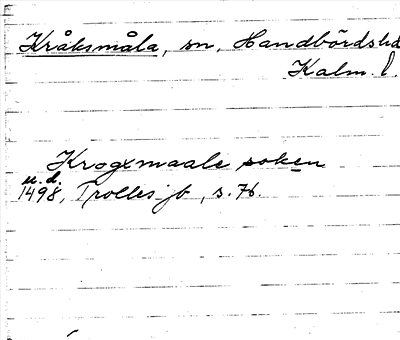 Kråksmåla, sn, Handbördshd
Kalm. l.
Krogxmaale soken
u. d.
1498, Trolles jb, s. 76.